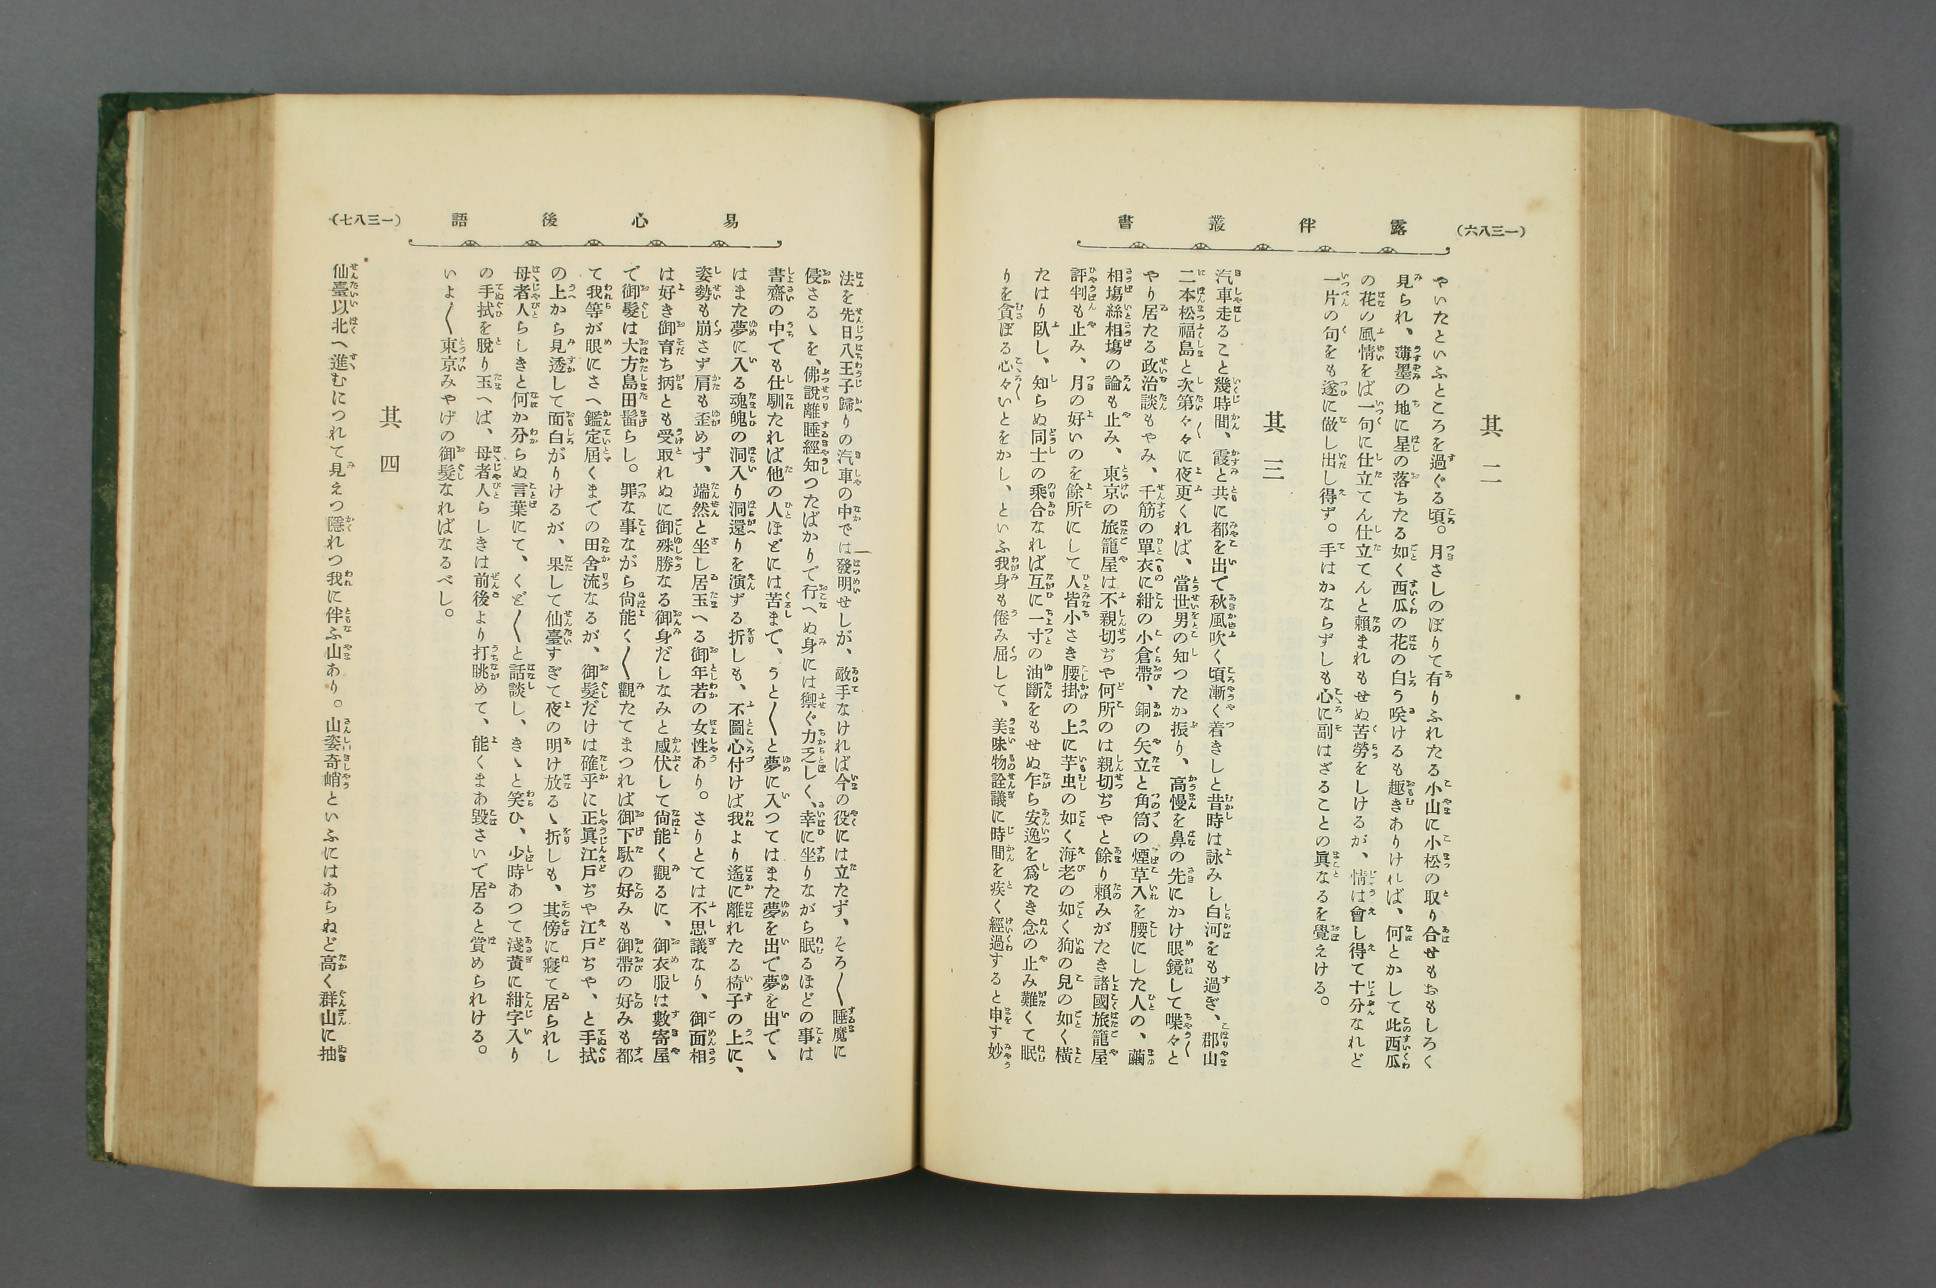 (一三八六)
露伴叢書
其二
やいたといふところを過ぐる頃。月さしのぼりて有りふれたる小山に小松の取り合せもおもしろく
見られ、薄墨の地に星の落ちたる如く西瓜の花の白う咲けるも趣きありければ、何とかして此西瓜
の花の風情をば一句に仕立てん仕立てんと賴まれもせぬ苦勞をしけるが、情は會し得て十分なれど
一片の句をも遂に做し出し得ず。手はかならずしも心に副はざることの眞なるを覺えける。
其三
汽車走ること幾時間、霞と共に都を出で秋風吹く頃漸く着きしと昔時は詠みし白河をも過ぎ、郡山
二本松福島と次第々々に夜更くれば、當世男の知つたか振り、高慢を鼻の先にかけ眼鏡して喋々と
やり居たる政治談もやみ、千筋の單衣に紺の小倉帶、銅の矢立と角筒の煙草入を腰にした人の、繭
相塲絲相塲の論も止み、東京の旅籠屋は不親切ぢや何所のは親切ぢやと餘り賴みがたき諸國旅籠屋
評判も止み、月の好いのを餘所にして人皆小さき腰掛の上に芋虫の如く海老の如く狗の兒の如く橫
たはり臥し、知らぬ同士の乘合なれば互に一寸の油斷をもせぬ乍ら安逸を爲たき念の止み難くて眠
りを貪ぼる心々いとをかし、といふ我身も倦み屈して、美味物詮議に時間を疾く經過すると申す妙
(一三八七)
易心後語
法を先日八王子歸りの汽車の中では發明せしが、敵手なければ今の役には立たず、そろ〱睡魔に
侵さるゝを、佛說離睡經知つたばかりで行へぬ身には禦ぐ力乏しく、幸に坐りながら眠るほどの事は
書齋の中でも仕馴たれば他の人ほどには苦まで、うと〱と夢に入つてはまた夢を出で夢を出でゝ
はまた夢に入る魂魄の洞入り洞還りを演ずる折しも、不圖心付けば我より遙に離れたる椅子の上に、
姿勢も崩さず肩も歪めず、端然と坐し居玉へる御年若の女性あり。さりとては不思議なり、御面相
は好き御育ち柄とも受取れぬに御殊勝なる御身だしなみと感伏して尙能く觀るに、御衣服は數寄屋
で御髮は大方島田髷らし。罪な事ながら尙能く〱觀たてまつれば御下駄の好みも御帶の好みも都
て我等が眼にさへ鑑定屆くまでの田舍流なるが、御髮だけは確乎に正眞江戶ぢや江戶ぢや、と手拭
の上から見透して面白がりけるが、果して仙臺すぎて夜の明け放るゝ折しも、其傍に寢て居られし
母者人らしきと何か分らぬ言葉にて、くど〱と話談し、きゝと笑ひ、少時あつて淺黃に紺字入り
の手拭を脫り玉へば、母者人らしきは前後より打眺めて、能くまあ毀さいで居ると賞められける。
いよ〱東京みやげの御髮なればなるべし。
其四
仙臺以北へ進むにつれて見えつ隱れつ我に伴ふ山あり。山姿奇峭といふにはあらねど高く群山に抽